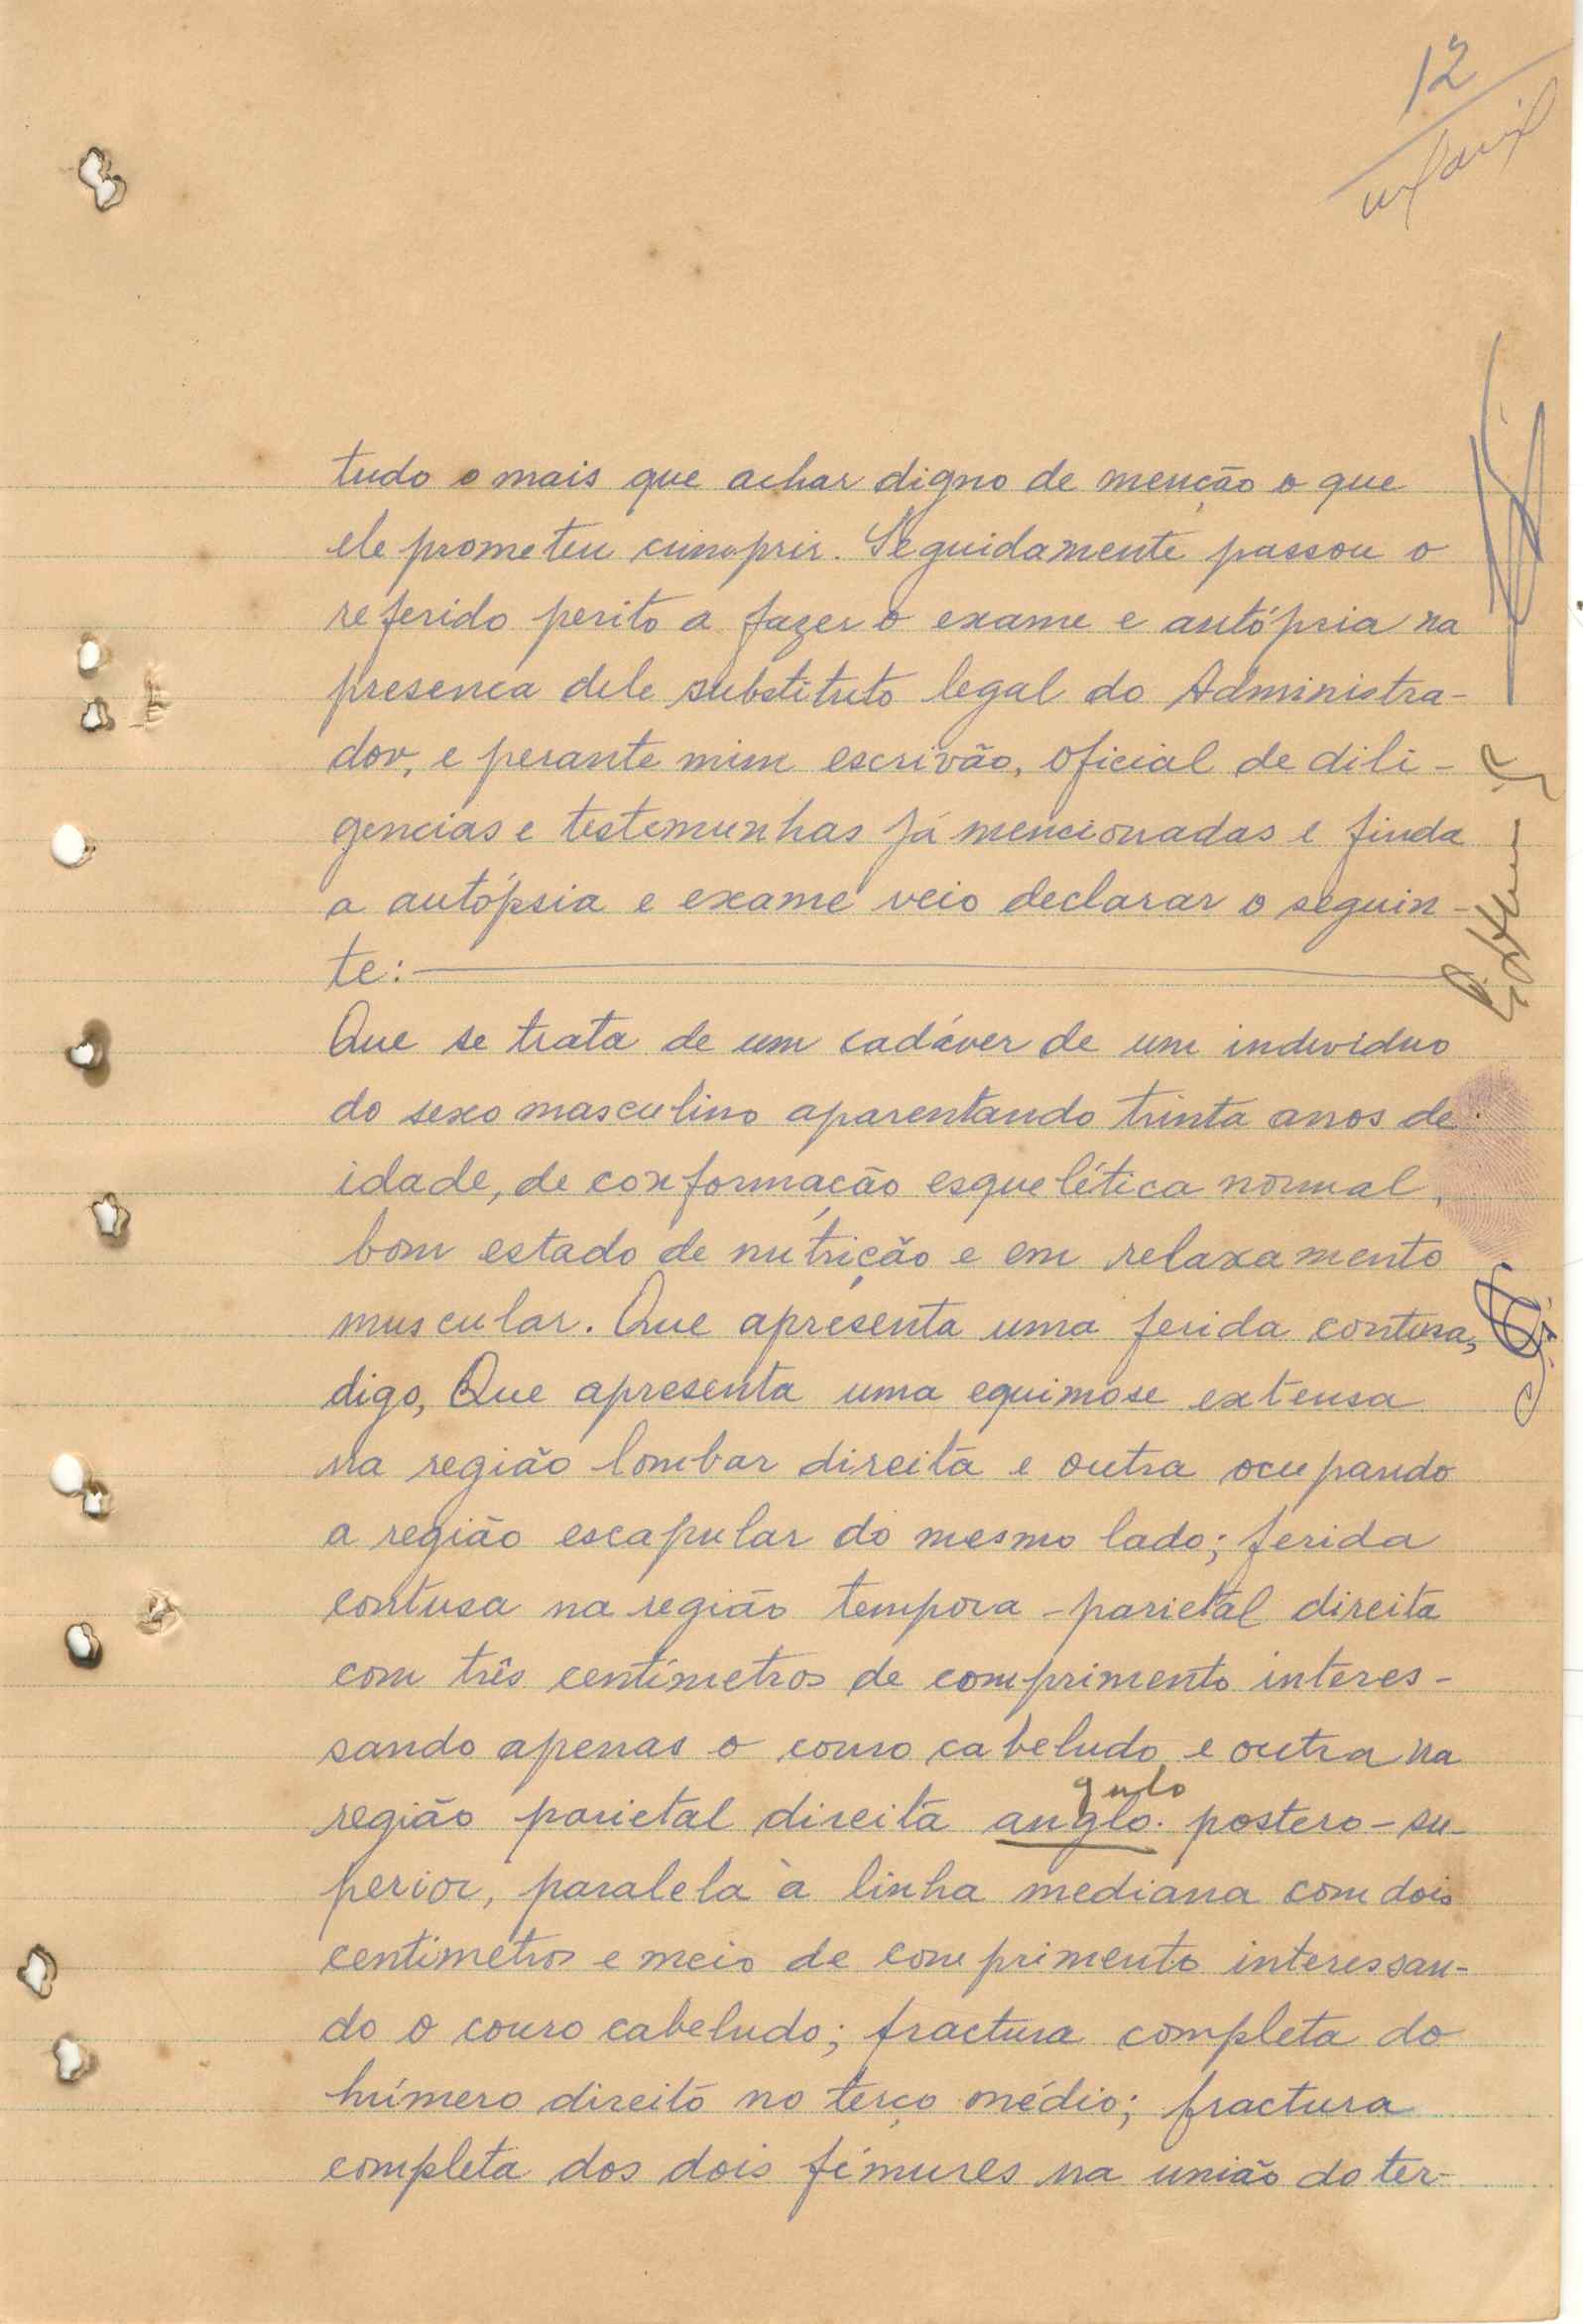 12
tudo o mais que achar digno de menção o que
ele prometeu cumprir. Seguidamente passou o
referido perito a fazer o exame e autópsia na
presenca dele substituto legal do Administra-
dor, e perante mim escrivão, oficial de dili-
gencias e testemunhas já mencionadas e finda
a autópsia e exame veio declarar o seguin-
te:
Que se trata de um cadáver de um individuo
do sexo masculino aparentando trinta anos de
idade, de conformação esquelética normal,
bom estado de nutrição e em relaxamento
muscular. Que apresenta uma ferida contusa,
digo, Que apresenta uma equimose extensa
na região lombar direita e outra ocupando
a região escapular do mesmo lado; ferida
contusa na região tempora-parietal direita
com três centímetros de comprimento interes-
sando apenas o couro cabeludo e outra na
gulo
região parietal direita anglo. postero-su-
perior, paralela à linha mediana com dois
centimetros e meio de comprimento interessan-
do o couro cabeludo; fractura completa do
húmero direito no terço médio; fractura
completa dos dois fémures na união do ter-